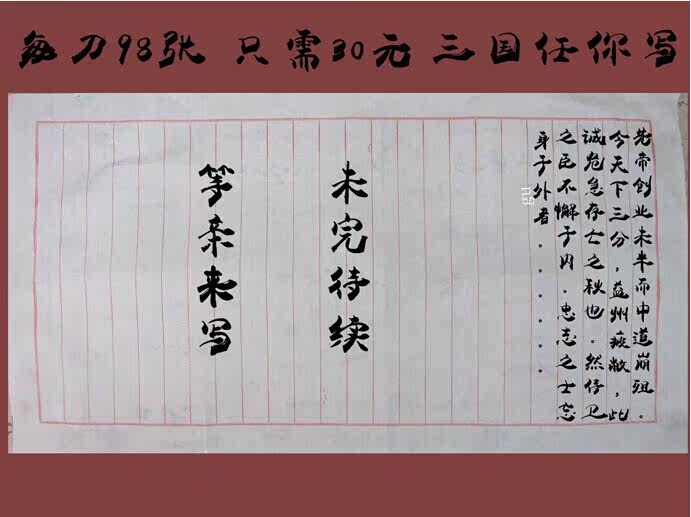 每刀98张 只需30元 三国任你写
先帝创业未半而中道崩殂．
今天下三分，益州疲敝，此
诚危急存亡之秋也．然侍卫
之臣不懈于内．忠志之士忘
身于外者．．．．．．
未完待续
等亲来写